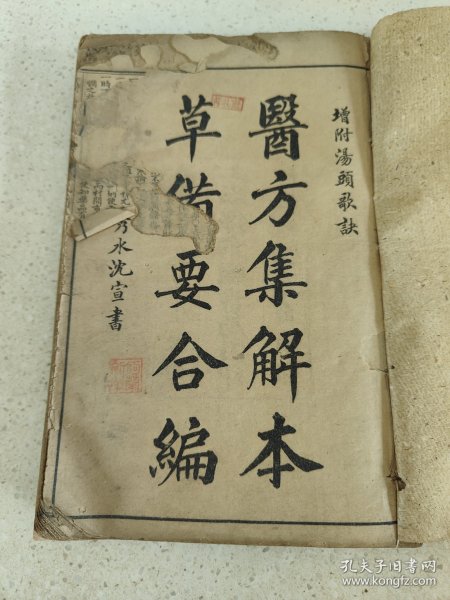 增附湯頭歌訣
醫方集解本
草備要合編
水沈宣書
孔夫子旧书网
www.kongfz.com